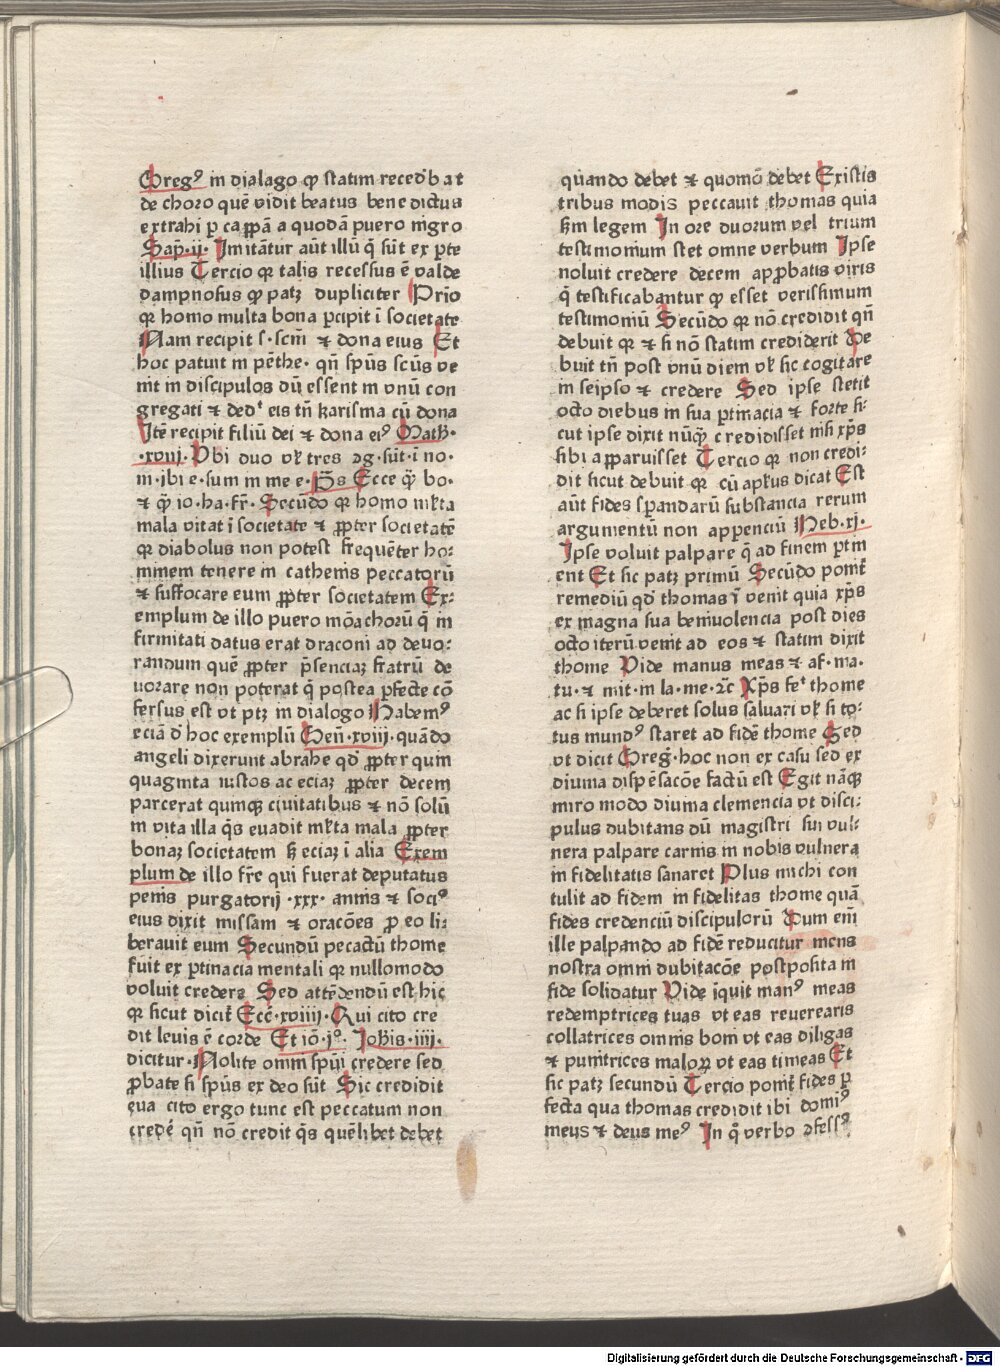 Greg⁹ in dialago qꝫ statim recedebat
de choro quē vidit beatus benedictus
extrahi ꝑ cappā a quodā puero nigro
Sap̄·ij· Imitātur aūt illū q̄ sūt ex ꝑte
illius Tercio qꝛ talis recessus ē valde
dampnosus qꝫ patꝫ dupliciter Prīo
qꝛ homo multa bona ꝑcipit ī societate
Nam recipit s·scm̄ ⁊ dona eius Et
hoc patuit in pēthe· qn̄ spūs scūs ve
nit in discipulos dū essent in vnū con
gregati ⁊ dedᵗ eis tn̄ karisma cū dona
Itē recipit filiū dei ⁊ dona ei⁹ Math·
·xviij· Vbi duo vl tres ꝯg·sūt·ī no·
in·ibi e·sum in me e·P̄s Ecce q̄ bo·
⁊ q̄ io·ha·fr̄· Secūdo qꝛ homo mlta
mala vitat ī societate ⁊ ꝓpter societatē
qꝛ diabolus non potest frequēter ho:
minem tenere in cathenis peccatorū
⁊ suffocare eum ꝓpter societatem Ex:
emplum de illo puero mōachorū q̄ in
firmitati datus erat draconi ad deuo:
randum quē ꝓpter p̄senciaꝫ fratrū de
uorare non poterat q̄ postea ꝑfecte cō
fersus est vt ptꝫ in dialogo Habem⁹
eciā d̄ hoc exemplū Gen̄·xviij·quādo
angeli dixerunt abrahe qd̄ ꝓpter quin
quaginta iustos ac eciaꝫ ꝓpter decem
parcerat quinqꝫ ciuitatibus ⁊ nō solū
in vita illa q̄s euadit mlta mala ꝓpter
bonaꝫ societatem sꝫ eciaꝫ ī alia Exem
plum de illo fr̄e qui fuerat deputatus
penis purgatorij ·xxx· annis ⁊ soci⁹
eius dixit missam ⁊ oracōes ꝓ eo li:
berauit eum Secundū pecactū thome
fuit ex ꝑtinacia mentali qꝛ nullomodo
voluit credere Sed attēdendū est hic
qꝛ sicut dicit Ecc̄·xviiij·Qui cito cre
dit leuis ē corde Et iō·jº· Iohis·iiij·
dicitur·Nolite omni spūi credere sed
ꝓbate si spūs ex deo sūt Sic credidit
eua cito ergo tunc est peccatum non
credē qn̄ nō credit q̄s quēlibet debet
quando debet ⁊ quomō debet Existis
tribus modis peccauit thomas quia
sm̄ legem In ore duorum vel trium
testimonium stet omne verbum Ipse
noluit credere decem apꝓbatis viris
q̄ testificabantur qꝫ esset verissimum
testimoniū Secūdo qꝛ nō credidit qn̄
debuit qꝛ ⁊ si nō statim crediderit De
buit tn̄ post vnū diem vl sic cogitare
in seipso ⁊ credere Sed ipse stetit
octo diebus in sua ꝑtinacia ⁊ forte si·
cut ipse dixit nūq̄ credidisset nisi xp̄s
sibi apparuisset Tercio qꝛ non credi:
dit sicut debuit qꝛ cū aplus dicat Est
aūt fides sperandarū substancia rerum
argumentū non apperenciū Heb·xj·
Ipse voluit palpare q̄ ad finem ꝑtin
ent Et sic patꝫ primū Secūdo ponit
remediū qd̄ thomas īvenit quia xp̄s
ex magna sua beniuolencia post dies
octo iterū venit ad eos ⁊ statim dixit
thome Vide manus meas ⁊ af·ma·
tu·⁊ mit·in la·me·⁊c̄ Xp̄s feᵗ thome
ac si ipse deberet solus saluari vl si to:
tus mund⁹ staret ad fidē thome Sed
vt dicit Greg̊·hoc non ex casu sed ex
diuina dispēsacōe factū est Egit nāqꝫ
miro modo diuina clemencia vt disci:
pulus dubitans dū magistri sui vul:
nera palpare carnis in nobis vulnera
in fidelitatis sanaret Plus michi con
tulit ad fidem in fidelitas thome quā
fides credenciū discipulorū Dum enī
ille palpando ad fidē reducitur mens
nostra omni dubitacōe postposita in
fide solidatur Vide īquit man⁹ meas
redemptrices tuas vt eas reuerearis
collatrices omnis boni vt eas diligas
⁊ punitrices maloꝝ vt eas timeas Et
sic patꝫ secundū Tercio ponit fides ꝑ
fecta qua thomas credidit ibi domi⁹
meus ⁊ deus me⁹ In q̊ verbo ꝯfess⁹
Digitalisierung gefördert durch die Deutsche Forschungsgemeinschaft - DFG